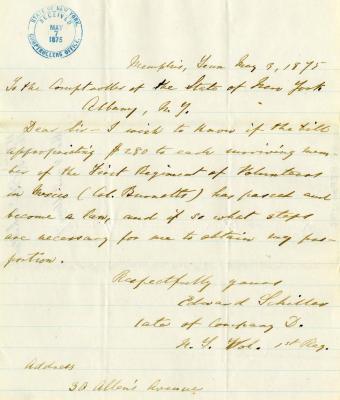 STATE OF NEW YORK,
RECEIVED
MAY
7
1875
COMPTROLLERS OFFICE.
Memphis, Tenn May 3, 1875
To the Comptroller of the State of New York
Albany, N.Y.
Dear Sir - I wish to know if the bill
appropriating $280 to each surviving mem-
ber of the First Regiment of Volunteers
in Mexico (Col. Burnetts) has passed and
become a law, and if so what steps
are necessary for me to obtain my pro-
portion.
Respectfully yours
Edward Schiller
late of Company D.
N.Y. Vol. 1st Reg.
Address
30 Allen's Avenue